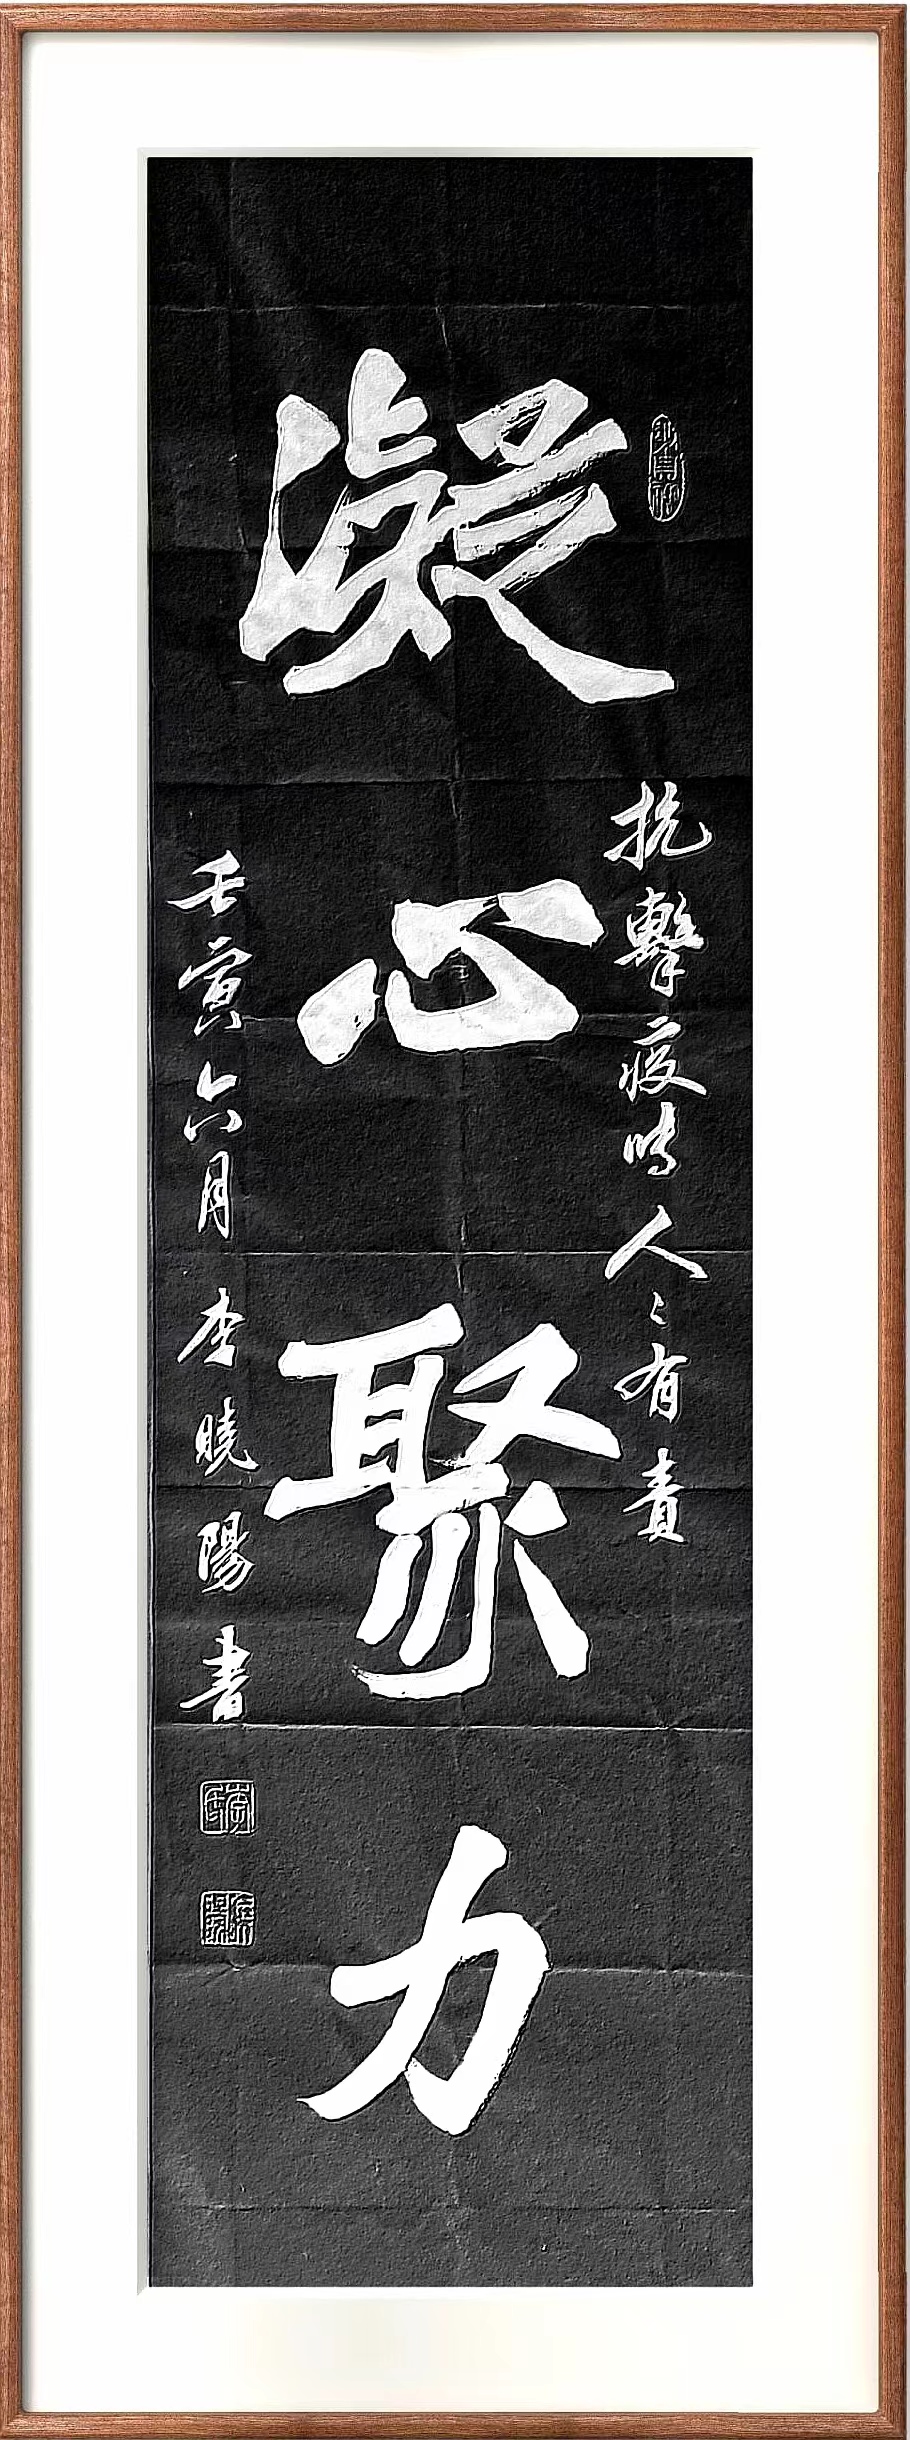 凝心聚力
抗擊疫時人〻有責
壬寅六月李曉陽書